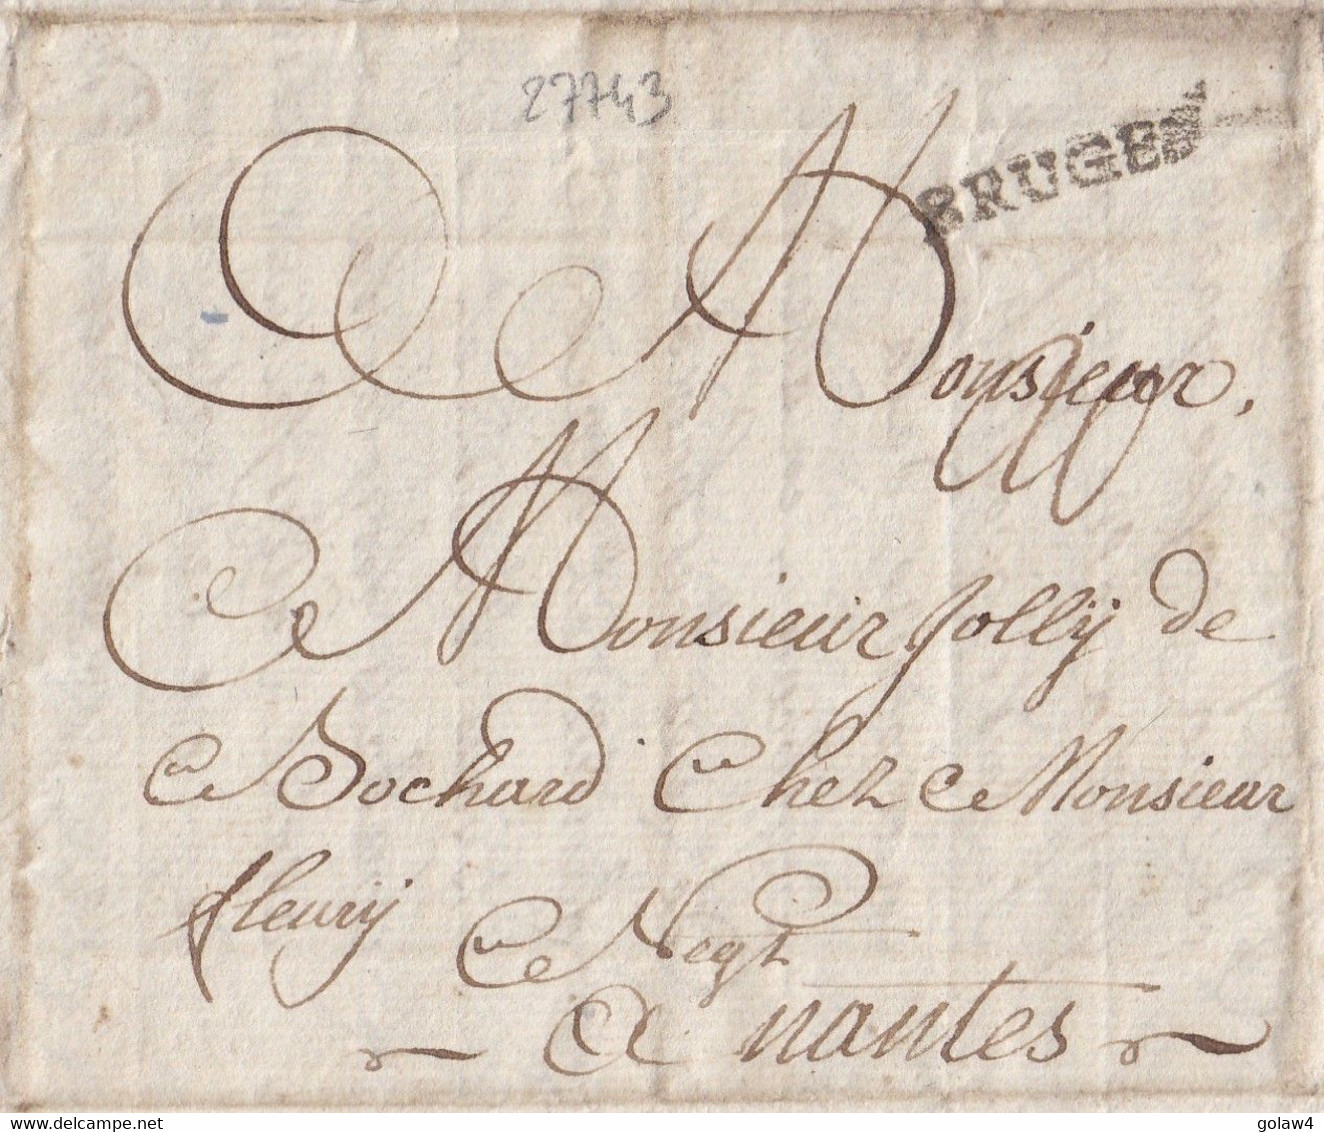 27743
BRUGES
Monsieur,
Monsieur Jollÿ de
Bochard Chez Monsieur
fleurÿ
Negt
A nantes
www.delcampe.net
golaw4